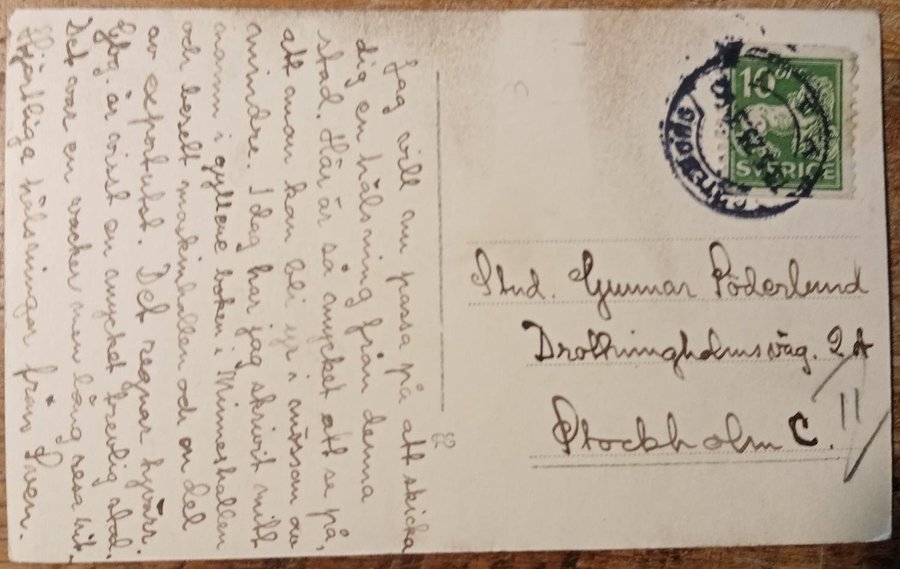 Jag vill nu passa på att skicka
dig en hälsning från denna
stad. Här är så mycket att se på,
att man kan bli yr i mössan av
mindre. I dag har jag skrivit mitt
namn i gyllene boken i Minneshallen
och besett maskinhallen och en del
av exportutst. Det regnar tyvärr.
Gbg är visst en mycket trevlig stad.
Det var en vacker men lång resa hit.
Hjärtliga hälsningar från Sven.
10 ÖRE
SVERIGE
GÖTEBORG
Stud. Gunnar Söderlund
Drottningholmsväg. 2A
Stockholm C.
11